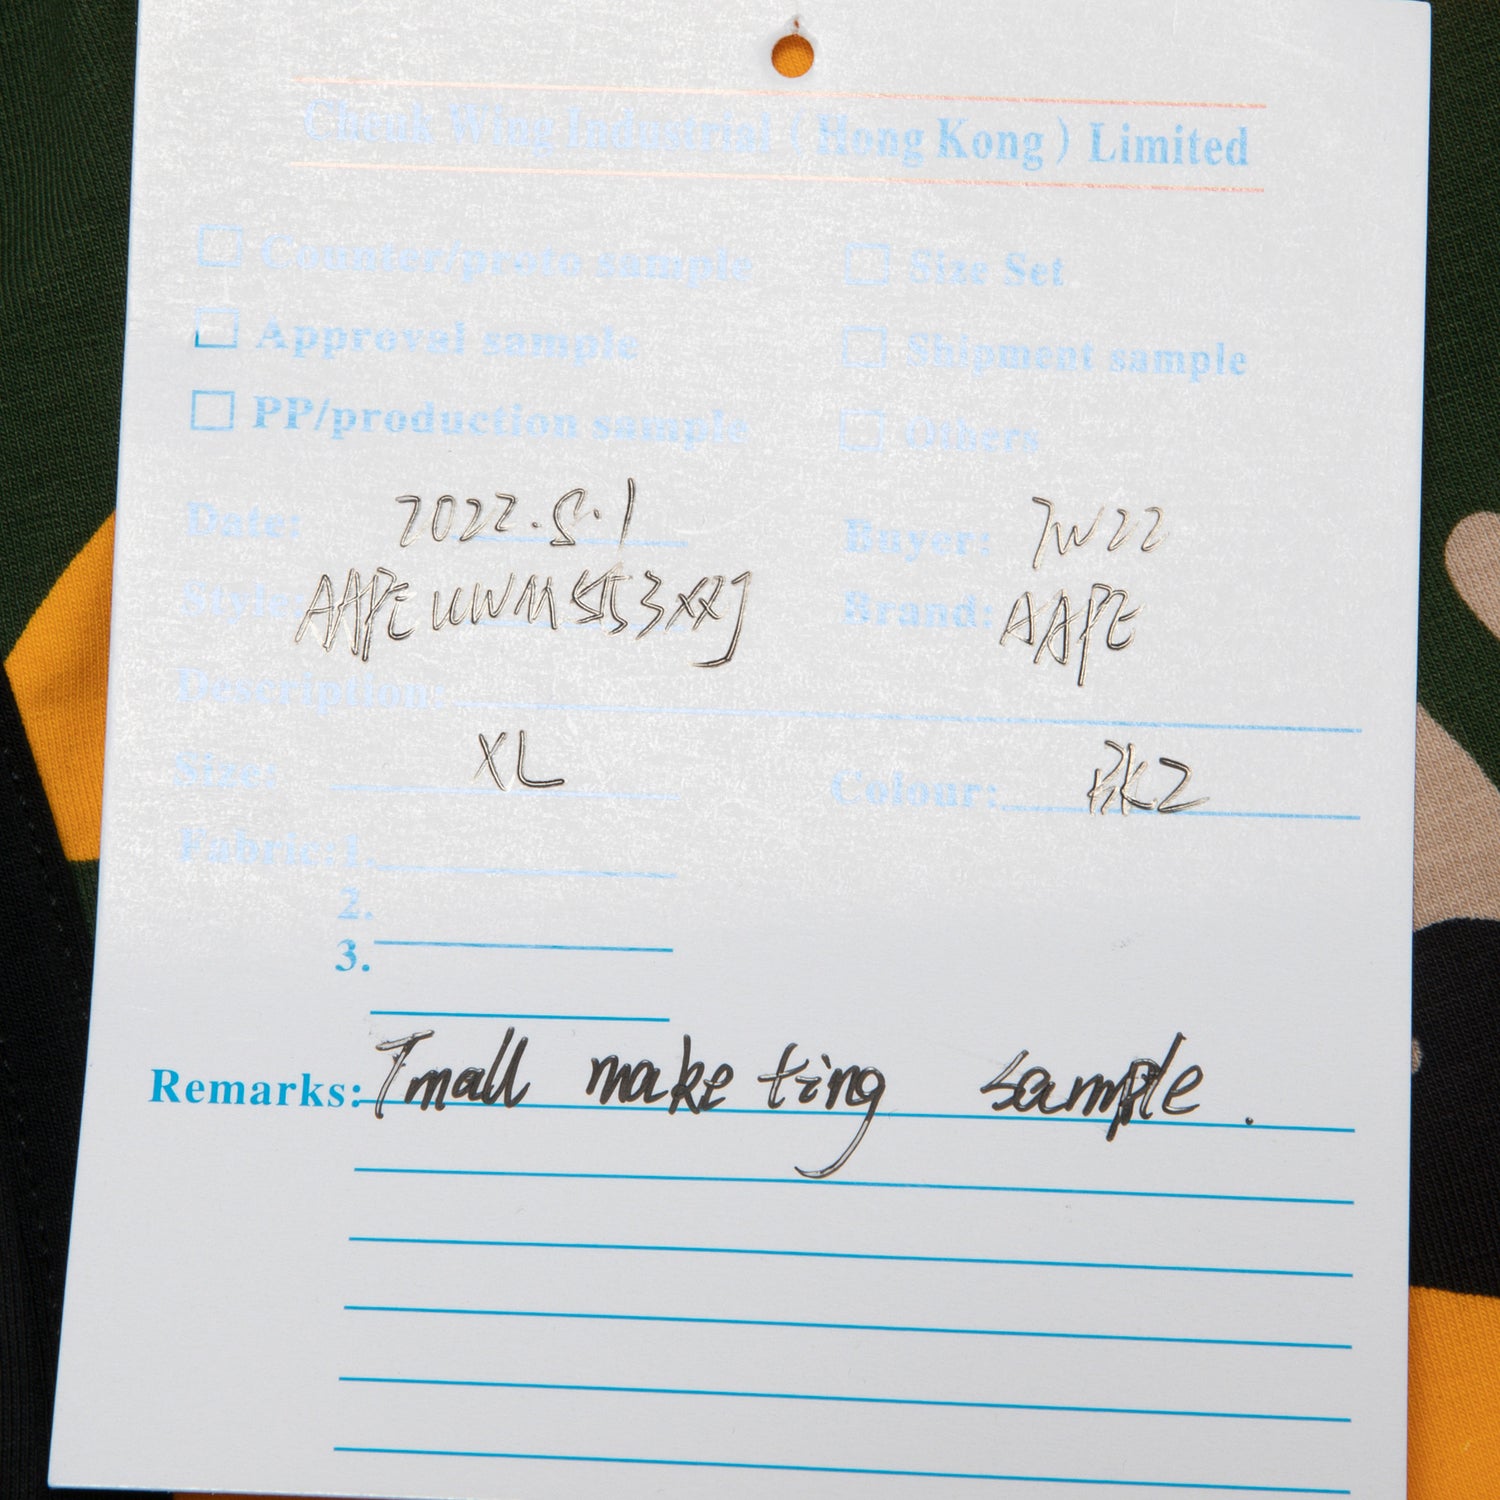 Cheuk Wing Industrial (Hong Kong) Limited
Counter/proto sample Size Set
Approval sample Shipment sample
PP/production sample Others
Date: 2022.5.1 Buyer:
Style: Brand: AAPE
Description:
Size: XL Colour:
Fabric:1.
2.
3.
Remarks: Tmall make ting sample.